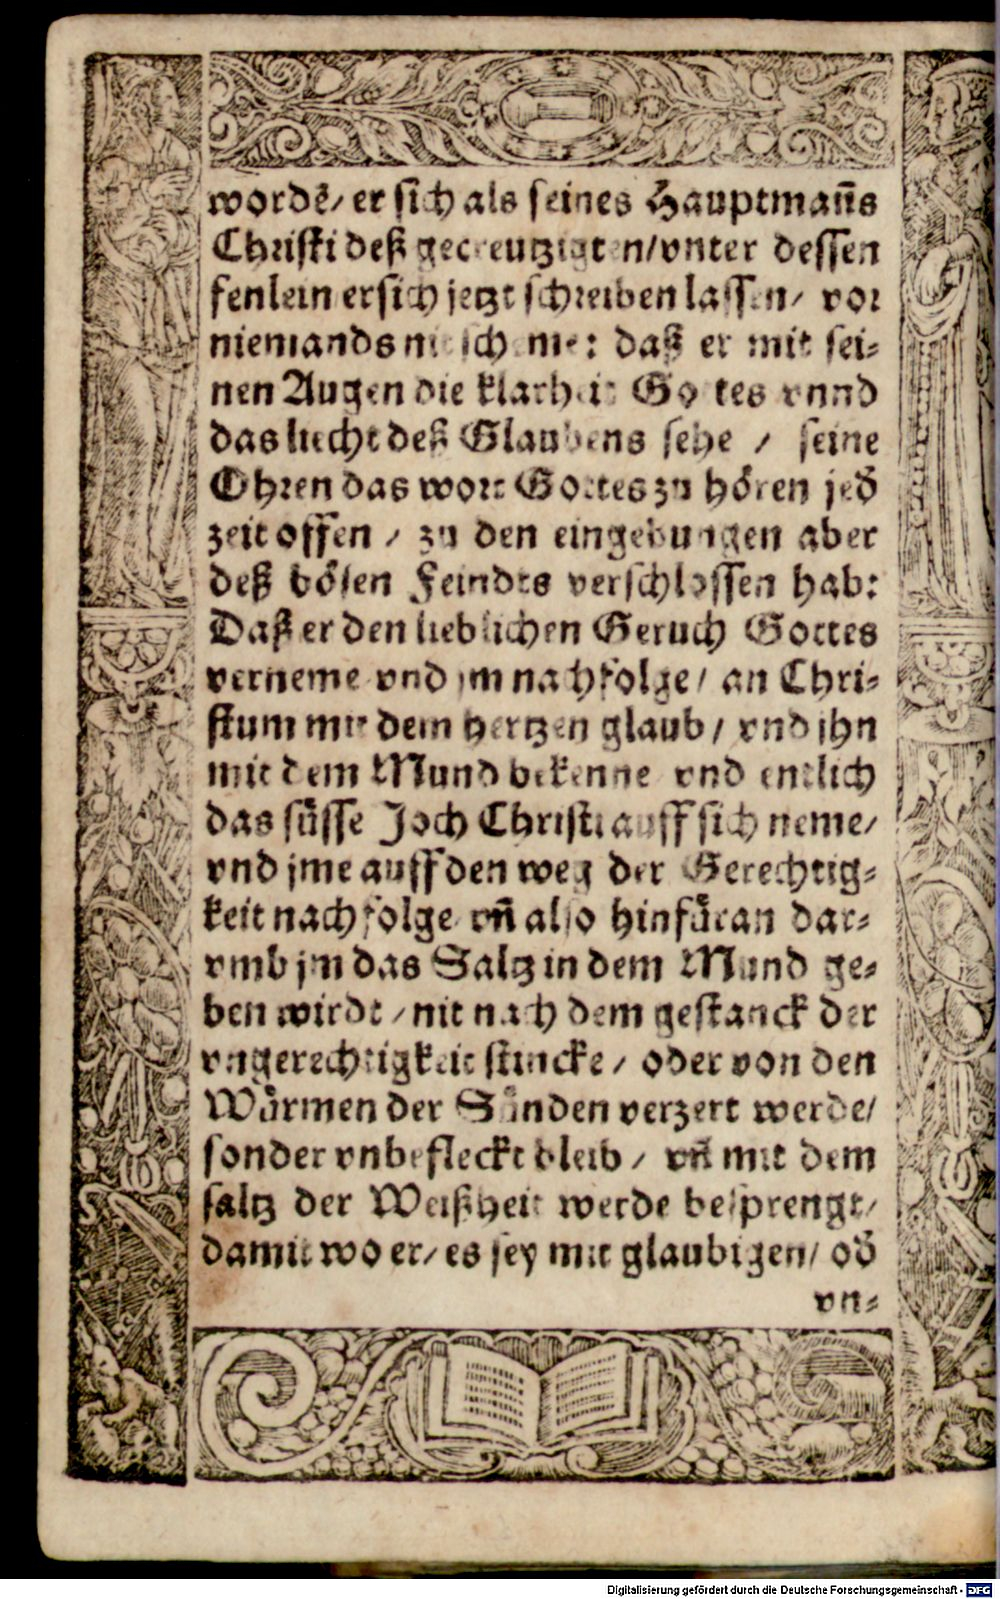 wordē/ er sich als seines Hauptmañs
Christi deß gecreutzigten/vnter dessen
fenlein er sich jetzt schreiben lassen/ vor
niemands nit scheme: daß er mit sei⸗
nen Augen die klarheit Gottes vnnd
das liecht deß Glaubens sehe / seine
Ohren das wort Gottes zu hören jed̄
zeit offen / zu den eingebungen aber
deß bösen Feindes verschlossen hab:
Daß er den lieblichen Geruch Gottes
verneme vnd jm nachfolge/ an Chri⸗
stum mit dem hertzen glaub/ vnd jhn
mit dem Mund bekenne vnd entlich
das süsse Joch Christi auff sich neme/
vnd jme auff den weg der Gerechtig⸗
keit nachfolge vñ also hinfüran dar⸗
vmb jm das Saltz in dem Mund ge⸗
ben wirdt / nit nach dem gestanck der
vngerechtigkeit stincke / oder von den
Würmen der Sünden verzert werde/
sonder vnbefleckt bleib / vñ mit dem
saltz der Weißheit werde besprengt/
damit wo er/ es sey mit glaubigen/ od̄
vn⸗
Digitalisierung gefördert durch die Deutsche Forschungsgemeinschaft - DFG